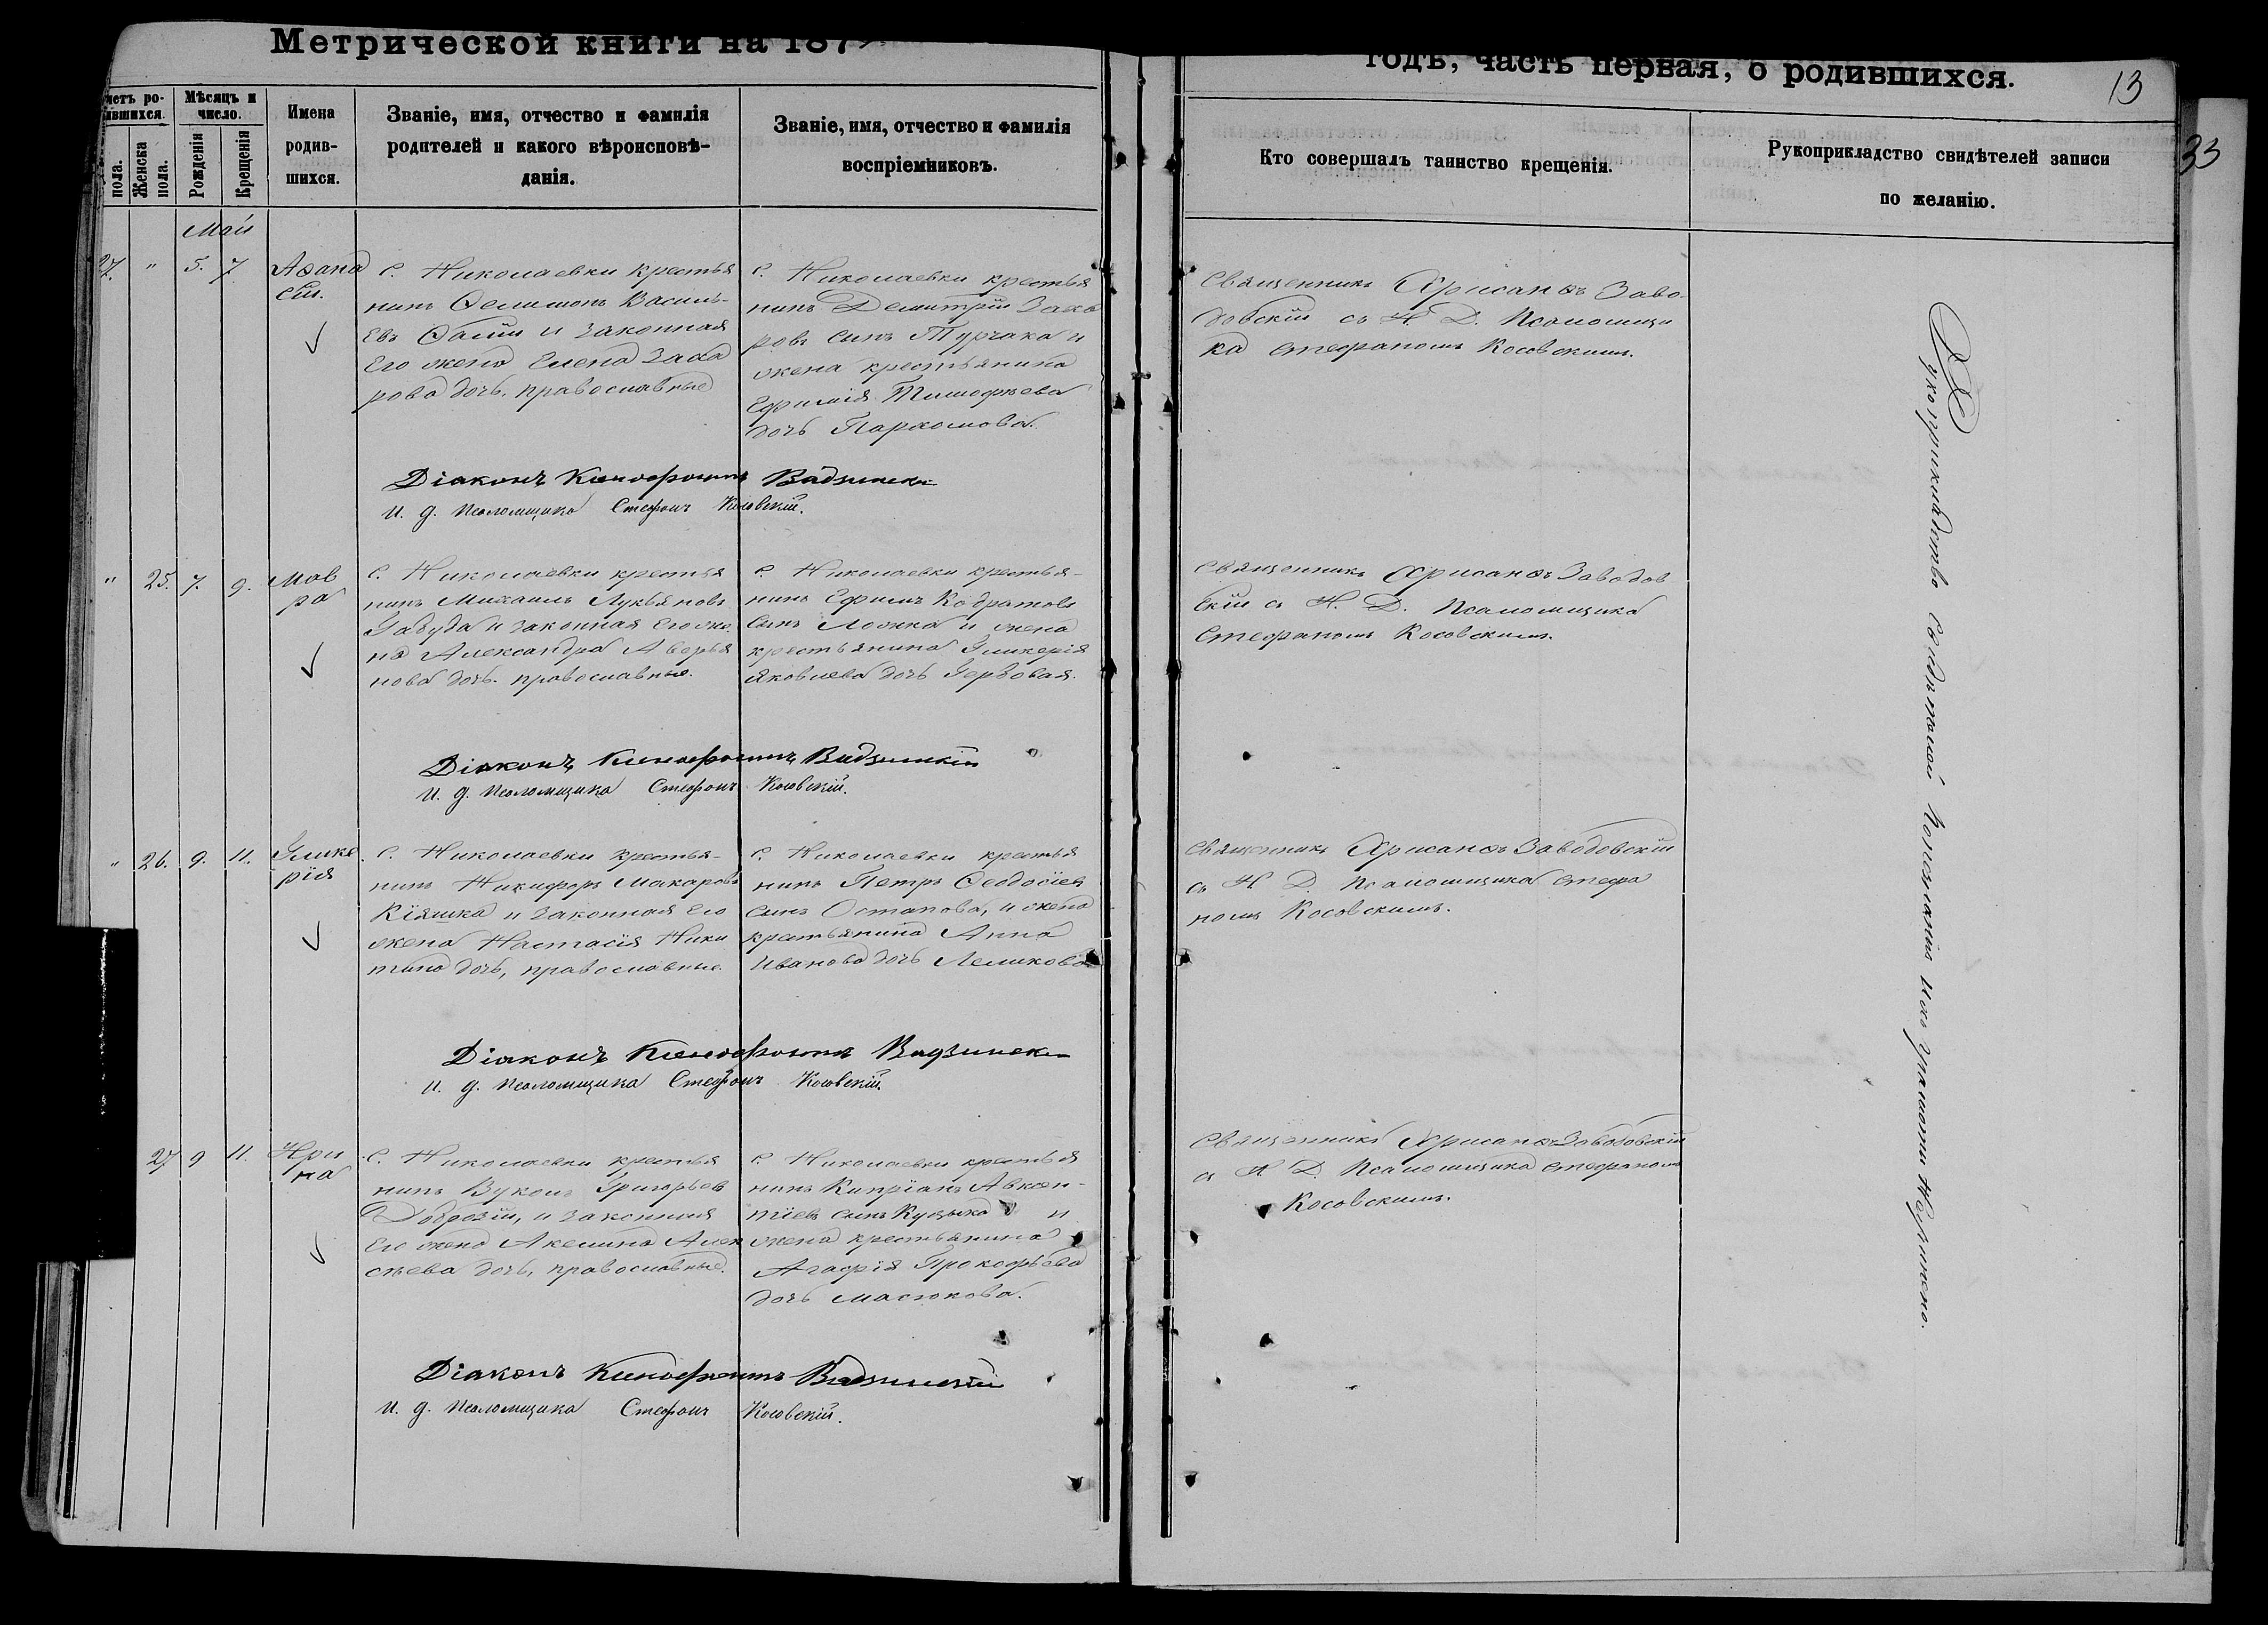 Метрической книги на 187
годъ, часть первая, о родившихся.
13
33
Мѣсяцъ и число.
Женска пола.
Рожденія
Крещенія
Имена родив-шихся.
Званіе, имя, отчество и фамилія
родителей и какого вѣроисповѣ-
данія.
Званіе, имя, отчество и фамилія
воспріемниковъ.
Кто совершалъ таинство крещенія.
Рукоприкладство свидѣтелей записи
по желанію.
Май
27. " 5. 7. Аѳана
сій.
с. Николаевки крестья
нинъ Василь-
евъ и законная
его жена Елена Заха
рова дочь, православные
с. Николаевки крестья
нинъ Димитрій Заха
ровъ сынъ Турчака и
жена крестьянина
Ефимія Тимофѣева
дочь Пархомова.
Священникъ Хрисанѳъ Заво-
довскій съ И. Д. Псаломщи
ка Стефаномъ Косовскимъ.
Діаконъ Ксенофонтъ
И. д. Псаломщика Стефанъ Косовскій.
" 25. 7. 9. Мав
ра
с. Николаевки крестья
нинъ Михаилъ Лукьяновъ
и законная его же
на Александра Аверья
нова дочь. православные.
с. Николаевки крестья-
нинъ Ефимъ Кодратовъ
сынъ и жена
крестьянина Гликерія
Яковлева дочь
Священникъ Хрисанѳъ Заводов
скій съ И. Д. Псаломщика
Стефаномъ Косовскимъ.
Діаконъ Ксенофонтъ
И. д. Псаломщика Стефанъ Косовскій.
" 26. 9. 11. Глике
рія
с. Николаевки крестья-
нинъ Никифоръ Макаровъ
Кіяшка и законная его
жена Настасія Ники
тина дочь, православные.
с. Николаевки крестья
нинъ Петръ Ѳеодосіевъ
сынъ Остапова, и жена
крестьянина Анна
Иванова дочь Лемикова
Священникъ Хрисанѳъ Заводовскій
съ И. Д. Псаломщика Стефа
номъ Косовскимъ.
Діаконъ Ксенофонтъ
И. д. Псаломщика Стефанъ Косовскій.
27 9 11. Ири
на
с. Николаевки крестья
нинъ Вуколъ Григорьев
и законная
его жена Акелина Алек
сѣева дочь, православные.
с. Николаевки крестья
нинъ Кипріанъ Авксен-
тіевъ сынъ и
жена крестьянина
Агафія Прокофьева
дочь Масюкова.
Священникъ Хрисанѳъ Заводовскій
съ И. Д. Псаломщика Стефаномъ
Косовскимъ.
Діаконъ Ксенофонтъ
И. д. Псаломщика Стефанъ Косовскій.
Рукоприкладство свидѣтелей